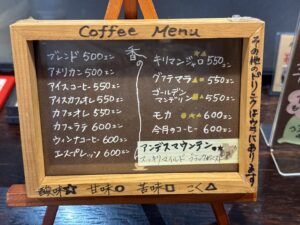 Coffee Menu
ブレンド 500エン
アメリカン 500エン
アイスコーヒー 550エン
アイスカフェオレ 550エン
カフェオレ 550エン
カフェラテ 600エン
ウィンナコーヒー 600エン
エスプレッソ 600エン
香り
キリマンジャロ☆▲ 550エン
グァテマラ▲■ 550エン
ゴールデン
マンデリン 550エン
モカ 600エン
今月のコーヒー 600エン
アンデスマウンテン
スッキリマイルド
その他のドリンクは中にあります
酸味☆ 甘味○ 苦味□ こく△